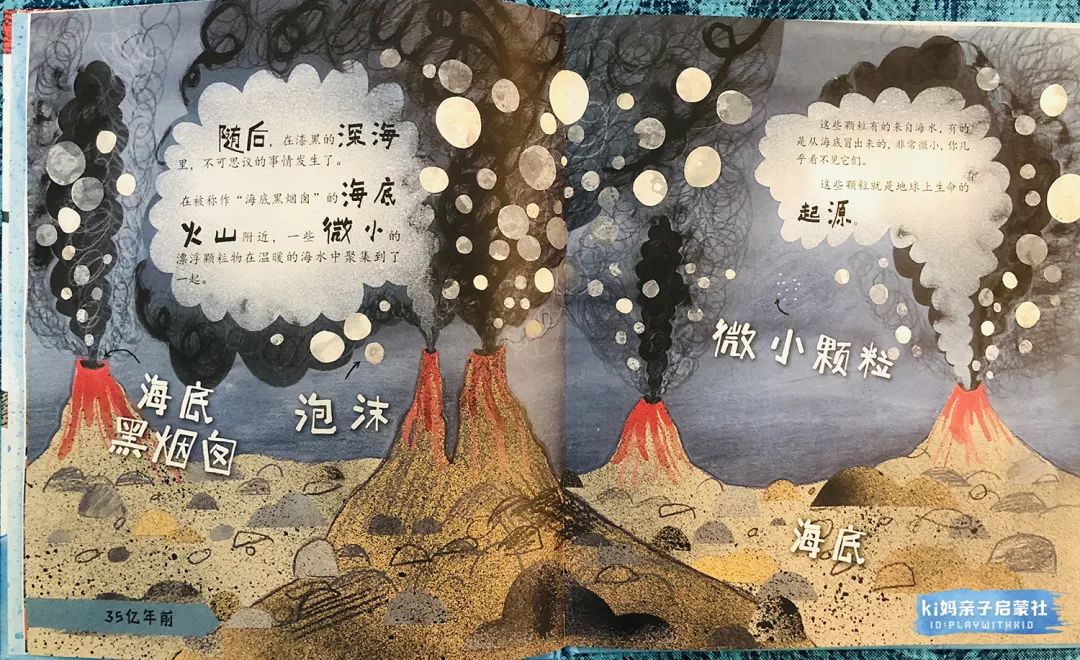 随后，在漆黑的深海
里，不可思议的事情发生了。
在被称作“海底黑烟囱”的海底
火山附近，一些微小的
漂浮颗粒物在温暖的海水中聚集到了
一起。
海底
黑烟囱
泡沫
35亿年前
这些颗粒有的来自海水，有的
是从海底冒出来的，非常微小，你几
乎看不见它们。
这些颗粒就是地球上生命的
起源。
微小颗粒
海底
ki妈亲子启蒙社
ID:PLAYWITHKID